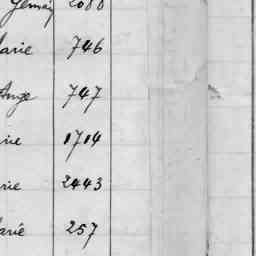 2088
Marie 746
Ange 747
rie 1714
rie 2443
Marie 257